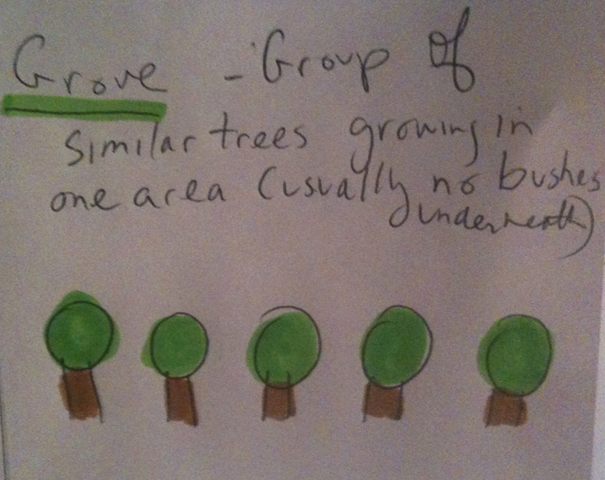 Grove - Group of
similar trees growing in
one area (usually no bushes
underneath)